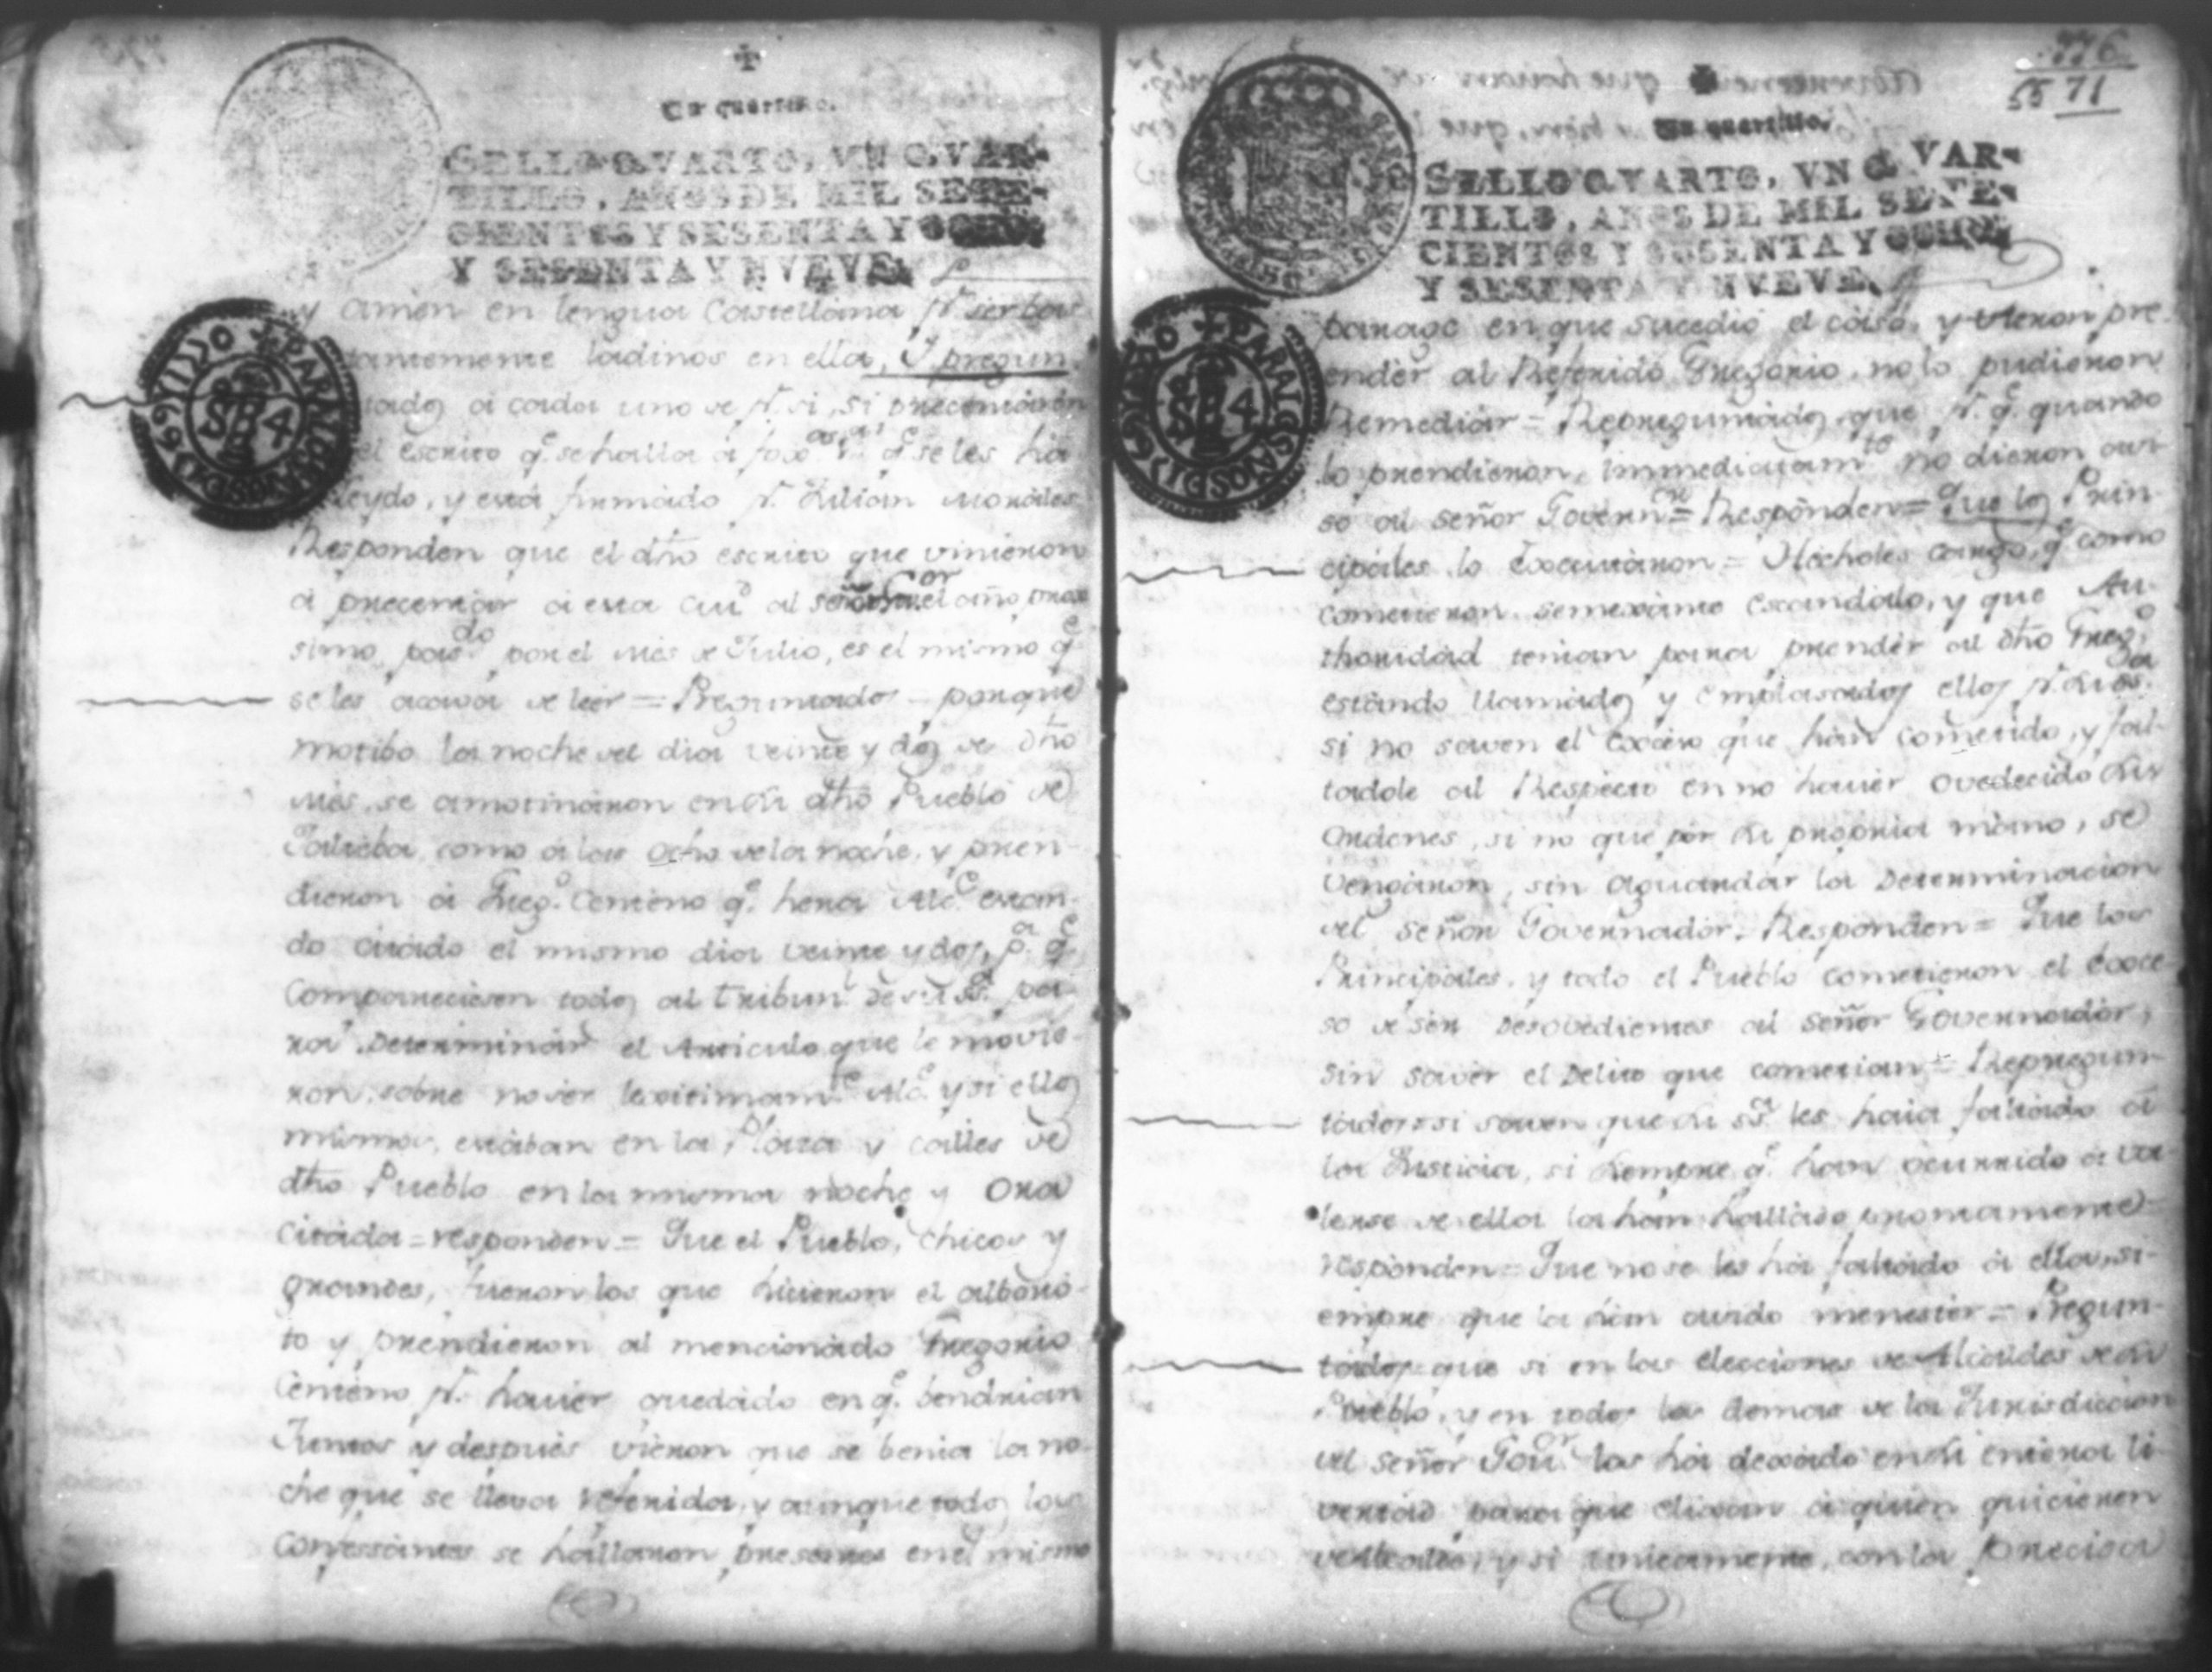 Un quartillo.
SELLO QVARTO, VN QVAR-
TILLO, AÑOS DE MIL SETE-
CIENTOS Y SESENTA Y OCHO,
Y SESENTA Y NVEVE.
y amen en lengua Castellana pr. ser bas
tantemente ladinos en ella, Y pregun
tados a cada uno de pr. si, si precentaron
el escrito qe. se halla a foxas qe. se les ha
leydo, y está firmado pr. Julian Morales
Responden que el dho escrito que vinieron
á precentar a esta Ciud. al señor Gor. el año proxi
simo pasdo. por el mes de Julio, es el mismo qe.
se les acava de leer = Preguntados = porque
motibo la noche del dia veinte y dos de dho
mes, se amotinaron en su dho Pueblo de
como a las ocho de la noche, y pren-
dieron a Grego. Centeno qe. hera Alce. estan-
do citado el mismo dia veinte y dos, pa. qe.
Compareciesen todos al tribunl. de su Sa. pa-
ra Determinar el Articulo que le movie-
ron, sobre no ser lexitimamte. Alce. y si ellos
mismos, estaban en la Plaza y calles de
dho Pueblo en la misma noche y ora
citada = responden = Que el Pueblo, chicos y
grandes, fueron los que hicieron el alboro-
to y prendieron al mencionado Gregorio
Centeno pr. haver quedado en qe. bendrian
Juntos y despues vieron que se benia la no-
che que se lleva referida, y aunque todos los
Confessantes se hallaron presentes en el mismo
776
55 71
Un quartillo.
SELLO QVARTO, VN QVAR-
TILLO, AÑOS DE MIL SETE-
CIENTOS Y SESENTA Y OCHO,
Y SESENTA Y NVEVE.
parage en que sucedió el caso, y vieron pre-
ender al Referido Gregorio, no lo pudieron
Remediar = Repreguntados, que pr. qe. quando
lo prendieron, immediatamte. no dieron avi-
so al señor Governor. = Responden = Que los Prin-
cipales lo executaron = Hacholes cargo, qe. como
cometieron semexante escandalo, y que Au-
thoridad tenian para prender al dho Grego.
estando llamados y emplasados ellos pr. su Sa.
si no saven el Exceso que han cometido, y fal-
tadole al Respecto en no haver ovedecido sus
Ordenes, si no que por su propria mano, se
vengaron, sin aguardar la Determinacion
del señor Governador. Responden = Que los
Principales, y todo el Pueblo cometieron el exce-
so de ser Desovedientes al señor Governador,
sin saver el Delito que cometian = Repregun-
tados = si saven que su Sa. les haia faltado a
la Justicia, si siempre qe. han ocurrido a va-
lerse de ella la han hallado prontamente =
responden = Que no se les ha faltado a ella, si-
empre que la han avido menester = Pregun-
tados = que si en las Elecciones de Alcaldes de su
Pueblo, y en todos los demas de la Jurisdiccion
del señor Gour. los ha dexado en su entera li-
vertad para que elixan a quien quicieren
de Alcaldes, y si unicamente, con la precisa